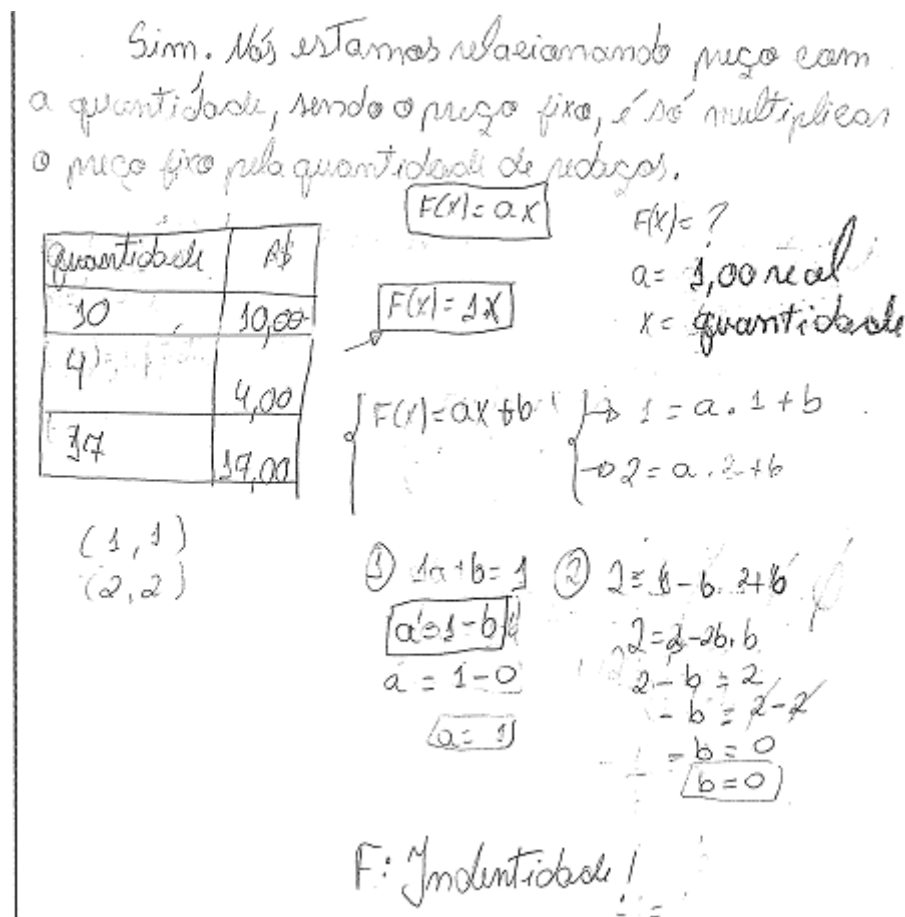 Sim. Nós estamos relacionando preço com
a quantidade, sendo o preço fixo, é só multiplicar
o preço fixo pela quantidade de pedaços.
F(x) = ax
F(x) = ?
a = 1,00 real
x = quantidade
quantidade R$
10 10,00
4 4,00
17 17,00
F(x) = 1x
F(x) = ax + b
→ 1 = a . 1 + b
→ 2 = a . 2 + b
(1, 1)
(2, 2)
① 1a + b = 1
a = 1 - b
a = 1 - 0
a = 1
② 2 = 1 - b . 2 + b
2 = 2 - 2b + b
2 - b = 2
- b = 2 - 2
- b = 0
b = 0
F: Indentidade!